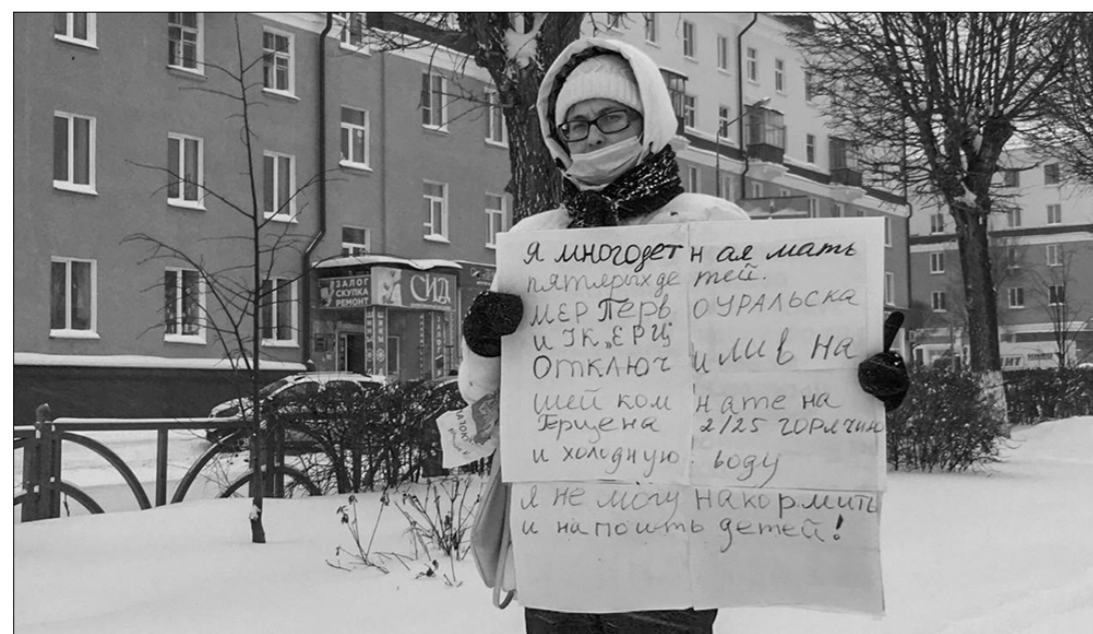 ЗАЛОГ
СКУПКА
РЕМОНТ
Я многодетная мать
пятлрыхде тей.
МЕР Перв оуральска
и ТК „ЕРЦ
Отключ или в на
шей ком нате на
Герцена 2/25 горячию
и холодную воду
я не могу накормить
и напоить детей!